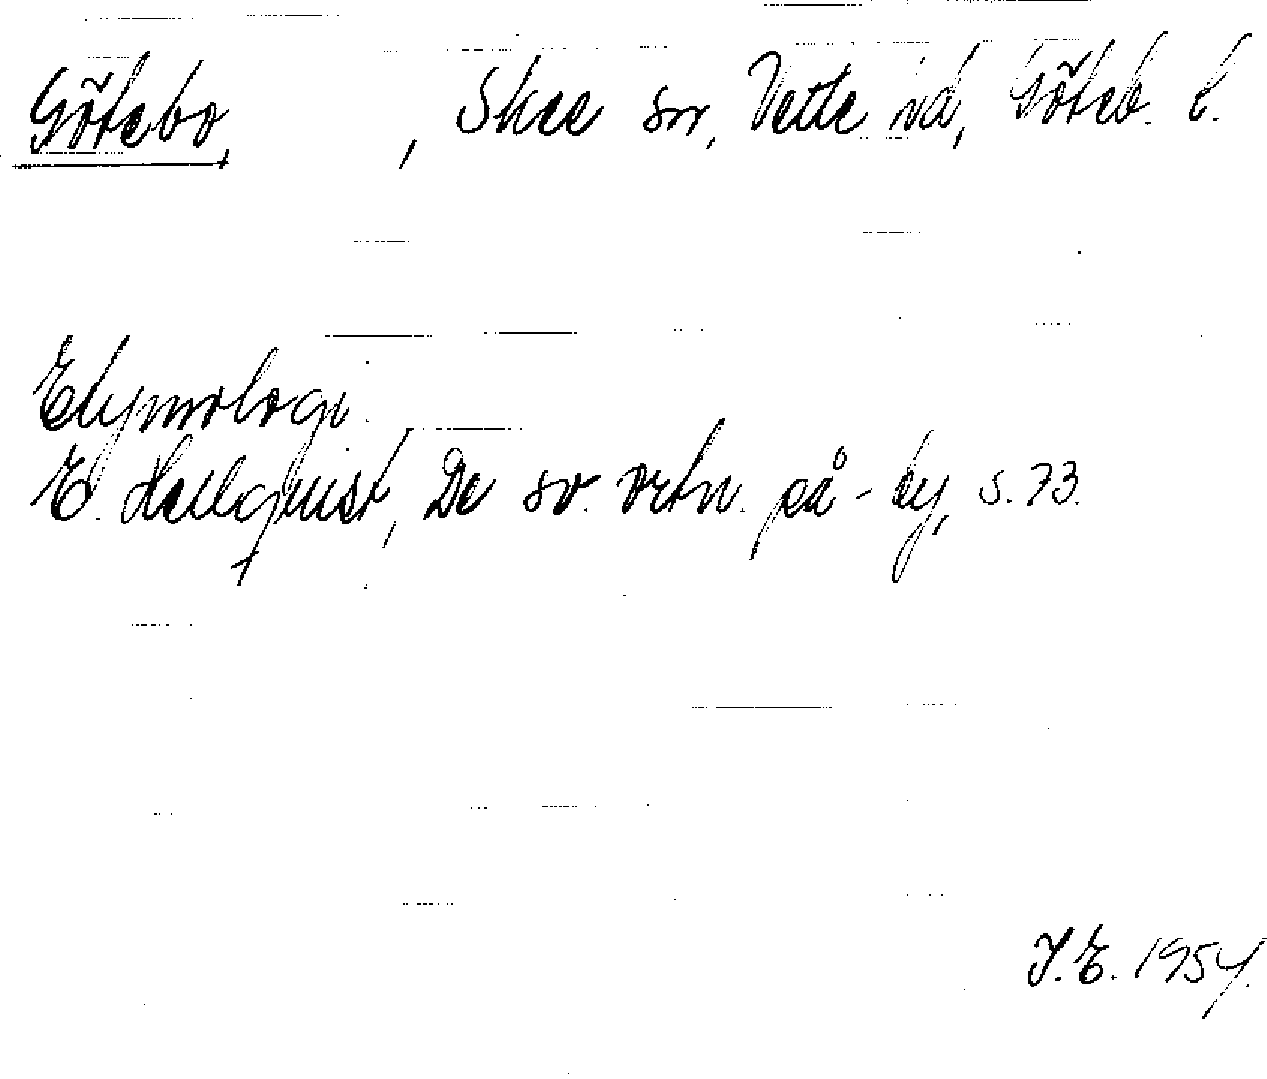 Götebo, , Skee sn, Vette hd, Göteb. l.
Etymologi.
E. Hellquist, De sv. ortn. på -by, s. 73.
I. E. 1954.